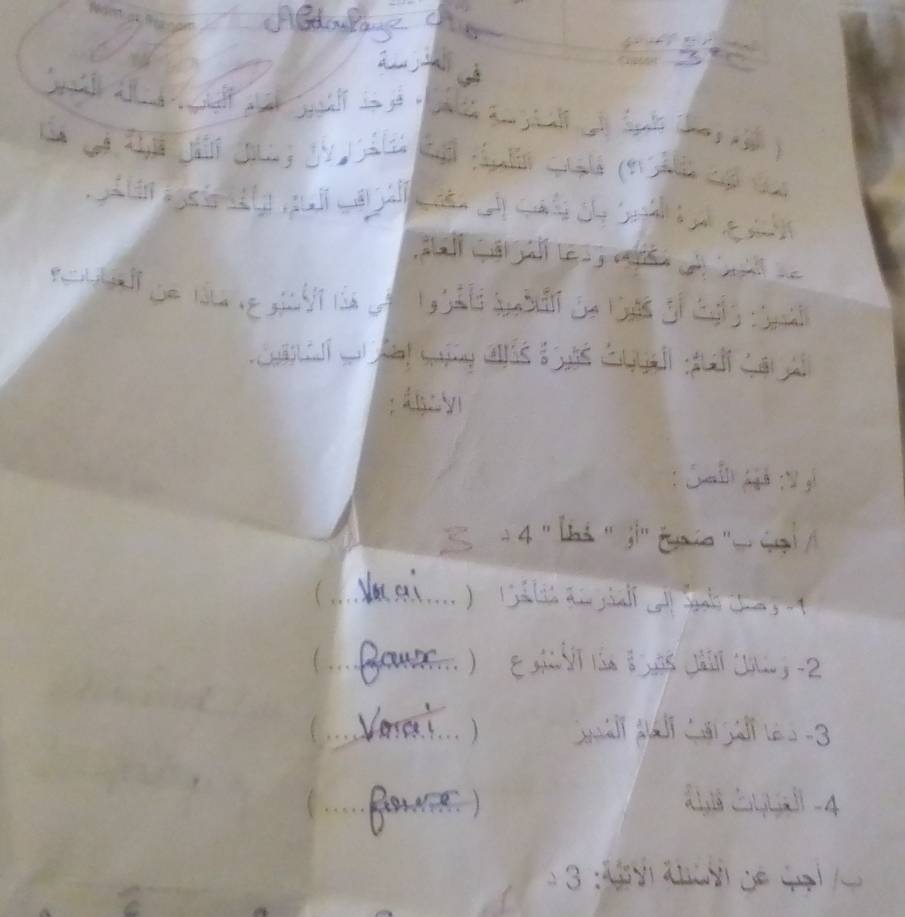 في المدرسة
وصل تلميذ إلى المدرسة متأخرا، فوجد المدير أمام الباب. فسأله المدير:
لماذا أنت متأخر؟! فأجاب التلميذ: أنت متأخر لأن وسائل النقل قليلة في هذا
الأسبوع. أمره المدير بأن يذهب إلى مكتب المراقب العام، ليأخذ تذكرة التأخر.
المدير إلى مكتبه، ودعا المراقب العام.
المدير: رأيت أن كثيرا من التلاميذ تأخروا في هذا الأسبوع، ماذا عن الغيابات؟
المراقب العام: الغيابات كثيرة كذلك بسبب إضراب السائقين.
الأسئلة :
أولا: فهم النص :
أ/ أجب ب" صحيح" أو " خطأ " 4 د 3
1- وصل تلميذ إلى المدرسة متأخرا ( .... Vrai .... )
2- وسائل النقل كثيرة هذا الأسبوع ( .... faux .... )
3- دعا المراقب العام المدير ( .... Vrai .... )
4- الغيابات قليلة ( .... fause .... )
ب/ أجب عن الأسئلة الآتية: 3 د